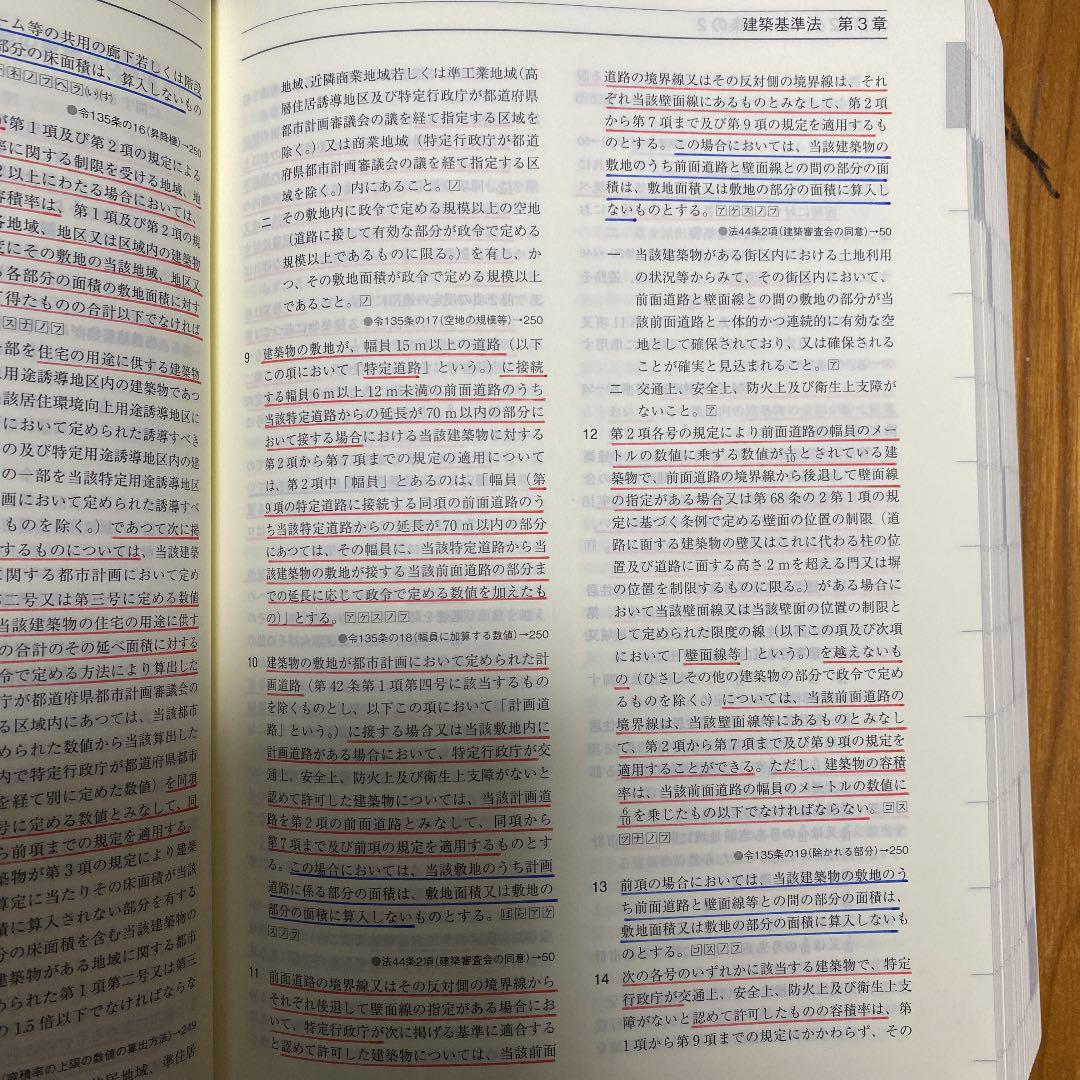 建築基準法　第3章
ーム等の共用の廊下若しくは階段
部分の床面積は、算入しないもの
●令135条の16(昇降機)→250
が第1項及び第2項の規定による
率に関する制限を受ける地域、地
2以上にわたる場合においては、
容積率は、第1項及び第2項の規
各地域、地区又は区域内の建築物
度にその敷地の当該地域、地区又
る各部分の面積の敷地面積に対す
て得たものの合計以下でなければ
スナノフ
部を住宅の用途に供する建築物
用途誘導地区内の建築物であつ
該居住環境向上用途誘導地区に
において定められた誘導すべき
の及び特定用途誘導地区内の建
の一部を当該特定用途誘導地区
画において定められた誘導すべ
ものを除く。)であつて次に掲
するものについては、当該建築
に関する都市計画において定め
第二号又は第三号に定める数値
当該建築物の住宅の用途に供す
の合計のその延べ面積に対する
令で定める方法により算出した
庁が都道府県都市計画審議会の
る区域内にあつては、当該都市
められた数値から当該算出した
内で特定行政庁が都道府県都市
を経て別に定めた数値)を同項
号に定める数値とみなして、同
ら前項までの規定を適用する。
築物が第3項の規定により建築
算定に当たりその床面積が当該
積に算入されない部分を有する
分の床面積を含む当該建築物の
建築物がある地域に関する都市
められた第1項第二号又は第三
の1.5倍以下でなければならな
(容積率の上限の数値の算出方法)→249
住居地域、準住居
地域、近隣商業地域若しくは準工業地域(高
層住居誘導地区及び特定行政庁が都道府県
都市計画審議会の議を経て指定する区域を
除く。)又は商業地域(特定行政庁が都道
府県都市計画審議会の議を経て指定する区
域を除く。)内にあること。ノ
二　その敷地内に政令で定める規模以上の空地
(道路に接して有効な部分が政令で定める
規模以上であるものに限る。)を有し、か
つ、その敷地面積が政令で定める規模以上
であること。ノ
●令135条の17(空地の規模等)→250
9　建築物の敷地が、幅員15m以上の道路(以下
この項において「特定道路」という。)に接続
する幅員6m以上12m未満の前面道路のうち
当該特定道路からの延長が70m以内の部分に
おいて接する場合における当該建築物に対する
第2項から第7項までの規定の適用について
は、第2項中「幅員」とあるのは、「幅員(第
9項の特定道路に接続する同項の前面道路のう
ち当該特定道路からの延長が70m以内の部分
にあつては、その幅員に、当該特定道路から当
該建築物の敷地が接する当該前面道路の部分ま
での延長に応じて政令で定める数値を加えたも
の)」とする。アケスノフ
●令135条の18(幅員に加算する数値)→250
10　建築物の敷地が都市計画において定められた計
画道路(第42条第1項第四号に該当するもの
を除くものとし、以下この項において「計画道
路」という。)に接する場合又は当該敷地内に
計画道路がある場合において、特定行政庁が交
通上、安全上、防火上及び衛生上支障がないと
認めて許可した建築物については、当該計画道
路を第2項の前面道路とみなして、同項から
第7項まで及び前項の規定を適用するものとす
る。この場合においては、当該敷地のうち計画
道路に係る部分の面積は、敷地面積又は敷地の
部分の面積に算入しないものとする。ほらアケ
スノフ
●法44条2項(建築審査会の同意)→50
11　前面道路の境界線又はその反対側の境界線から
それぞれ後退して壁面線の指定がある場合にお
いて、特定行政庁が次に掲げる基準に適合する
と認めて許可した建築物については、当該前面
道路の境界線又はその反対側の境界線は、それ
ぞれ当該壁面線にあるものとみなして、第2項
から第7項まで及び第9項の規定を適用するも
のとする。この場合においては、当該建築物の
敷地のうち前面道路と壁面線との間の部分の面
積は、敷地面積又は敷地の部分の面積に算入し
ないものとする。アケスノフ
●法44条2項(建築審査会の同意)→50
一　当該建築物がある街区内における土地利用
の状況等からみて、その街区内において、
前面道路と壁面線との間の敷地の部分が当
該前面道路と一体的かつ連続的に有効な空
地として確保されており、又は確保される
ことが確実と見込まれること。ア
二　交通上、安全上、防火上及び衛生上支障が
ないこと。ア
12　第2項各号の規定により前面道路の幅員のメー
トルの数値に乗ずる数値が4/10とされている建
築物で、前面道路の境界線から後退して壁面線
の指定がある場合又は第68条の2第1項の規
定に基づく条例で定める壁面の位置の制限(道
路に面する建築物の壁又はこれに代わる柱の位
置及び道路に面する高さ2mを超える門又は塀
の位置を制限するものに限る。)がある場合に
おいて当該壁面線又は当該壁面の位置の制限と
して定められた限度の線(以下この項及び次項
において「壁面線等」という。)を越えないも
の(ひさしその他の建築物の部分で政令で定め
るものを除く。)については、当該前面道路の
境界線は、当該壁面線等にあるものとみなし
て、第2項から第7項まで及び第9項の規定を
適用することができる。ただし、建築物の容積
率は、当該前面道路の幅員のメートルの数値に
6/10を乗じたもの以下でなければならない。コス
ツナノフ
●令135条の19(除かれる部分)→250
13　前項の場合においては、当該建築物の敷地のう
ち前面道路と壁面線等との間の部分の面積は、
敷地面積又は敷地の部分の面積に算入しないも
のとする。コスノフ
14　次の各号のいずれかに該当する建築物で、特定
行政庁が交通上、安全上、防火上及び衛生上支
障がないと認めて許可したものの容積率は、第
1項から第9項までの規定にかかわらず、その